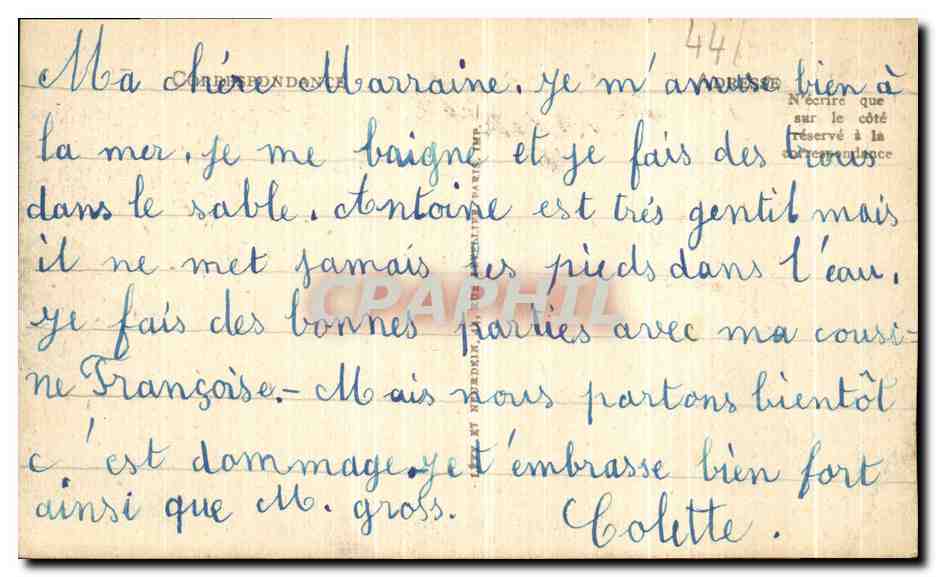 44/
CORRESPONDANCE
ADRESSE
N'écrire que
sur le côté
réservé à la
correspondance
Ma chére Marraine. je m'amuse bien à
la mer. je me baigne et je fais des trous
dans le sable. Antoine est trés gentil mais
il ne met jamais les pieds dans l'eau.
je fais des bonnes parties avec ma cousi-
ne Françoise.- Mais nous partons bientôt
c'est dommage. je t'embrasse bien fort
ainsi que M. gross.
Colette.
LÉVY ET NEURDEIN RÉUNIS, 44, RUE LETELLIER, PARIS, IMP.
CPAPHIL